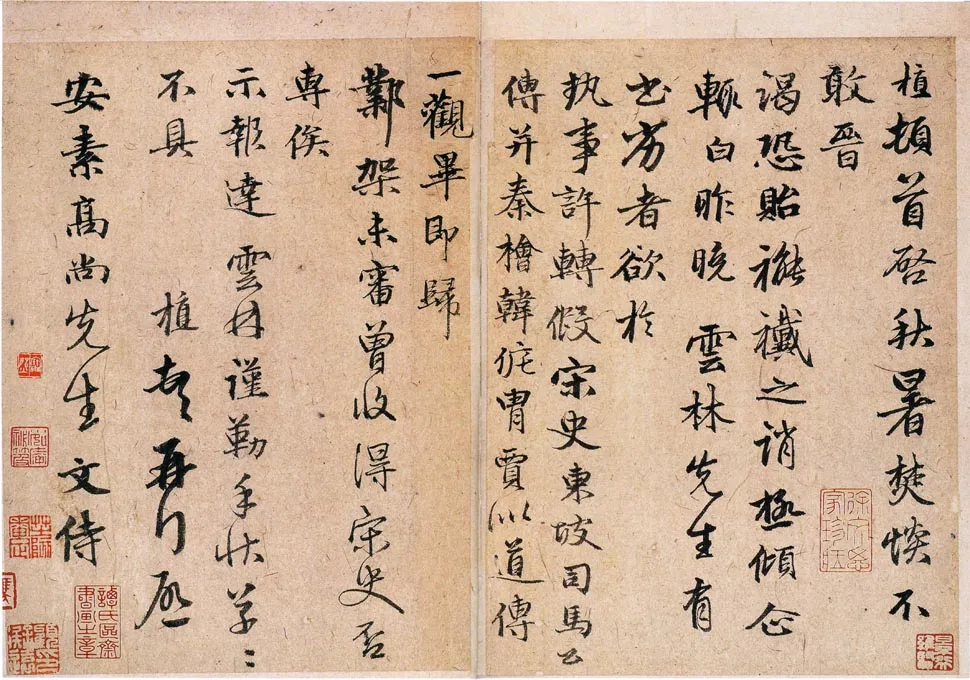 植頓首啓秋暑焚惔不
敢晉
謁恐貽褦襶之誚極傾企
輒白昨晚雲林先生有
書者欲於
執事許轉假宋史東坡司馬公
傳并秦檜韓侂胄賈似道傳
一觀畢即歸
鄴架未審曾收得宋史否
專俟
示報達雲林謹勒手狀草〻
不具 植頓首再拜啓
安素高尚先生文侍
譚氏區齋書畫之章